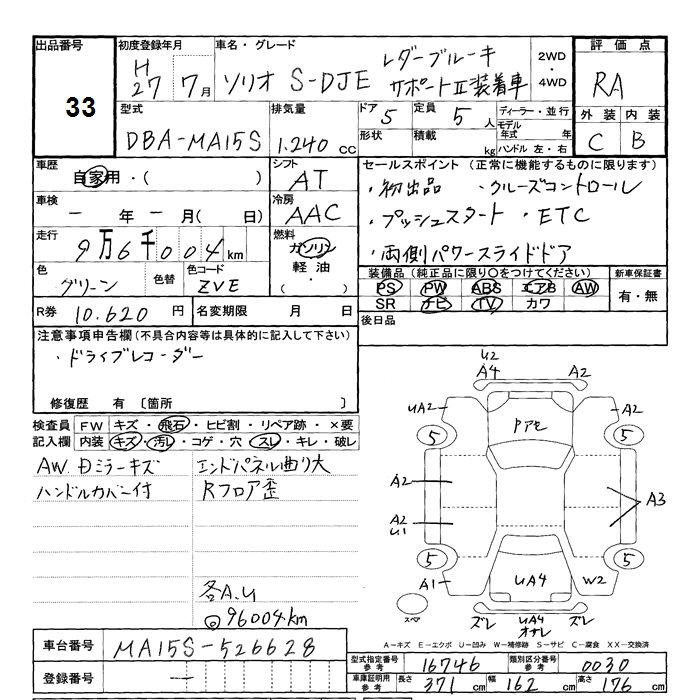 出品番号
33
初度登録年月
H
27 7月
車名・グレード
ソリオ S-DJE
レダーブルーキ
サポートⅡ装着車
2WD
・
4WD
評価点
RA
外装 内装
C B
型式
DBA-MA15S
排気量
1.240 cc
ドア 5
定員 5 人
形状
積載 kg
ディーラー・並行
モデル
年式 年
ハンドル 左・右
車歴
自家用・( )
シフト
AT
車検
一 年 一 月( 日)
冷房
AAC
走行
9万6千004km
燃料
ガソリン
軽油
・( )
色
グリーン
色替
色コード
ZVE
R券 10.620 円
名変期限 月 日
セールスポイント(正常に機能するものに限ります)
・初出品 ・クルーズコントロール
・プッシュスタート ・ETC
・両側パワースライドドア
装備品(純正品に限り○をつけてください)
PS PW ABS エアB AW
SR ナビ TV カワ
新車保証書
有・無
後日品
注意事項申告欄(不具合内容等は具体的に記入して下さい)
・ドライブレコーダー
修復歴 有 〔箇所 〕
検査員
記入欄
FW キズ・飛石・ヒビ割・リペア跡・×要
内装 キズ・汚レ・コゲ・穴・スレ・キレ・破レ
AW.Dミラーキズ
ハンドルカバー付
エンドパネル曲り大
Rフロア歪
各A.U
◎96004km
U2
A4
A2
UA2
A2
5
5
Pアセ
A2
A2
U1
A3
5
5
A1
UA4
W2
スペア
ズレ
UA4
オサレ
ズレ
A-キズ E-エクボ U-凹み W-補修跡 S-サビ C-腐食 XX-交換済
車台番号 MA15S-526628
登録番号 一
型式指定番号
参考
16746
類別区分番号
参考
0030
車庫証明用
参考
長さ 371 cm
幅 162 cm
高さ 176 cm